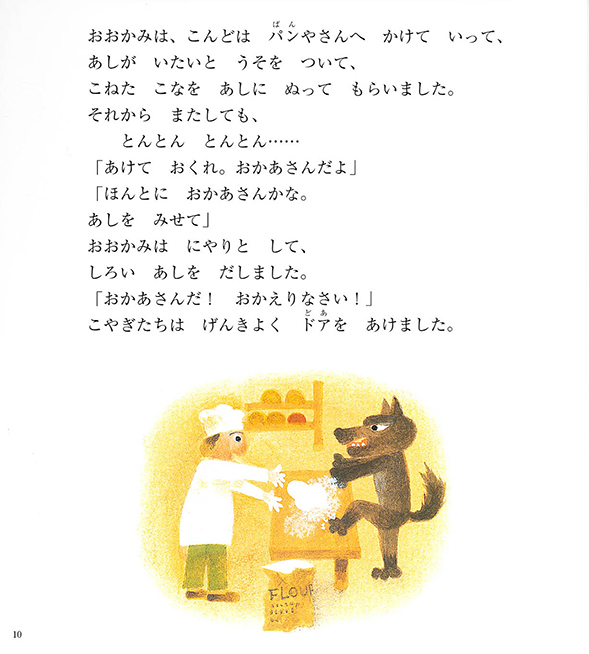 おおかみは、こんどは　パンやさんへ　かけて　いって、
あしが　いたいと　うそを　ついて、
こねた　こなを　あしに　ぬって　もらいました。
それから　またしても、
とんとん　とんとん……
「あけて　おくれ。おかあさんだよ」
「ほんとに　おかあさんかな。
あしを　みせて」
おおかみは　にやりと　して、
しろい　あしを　だしました。
「おかあさんだ！　おかえりなさい！」
こやぎたちは　げんきよく　ドアを　あけました。
FLOUR
10